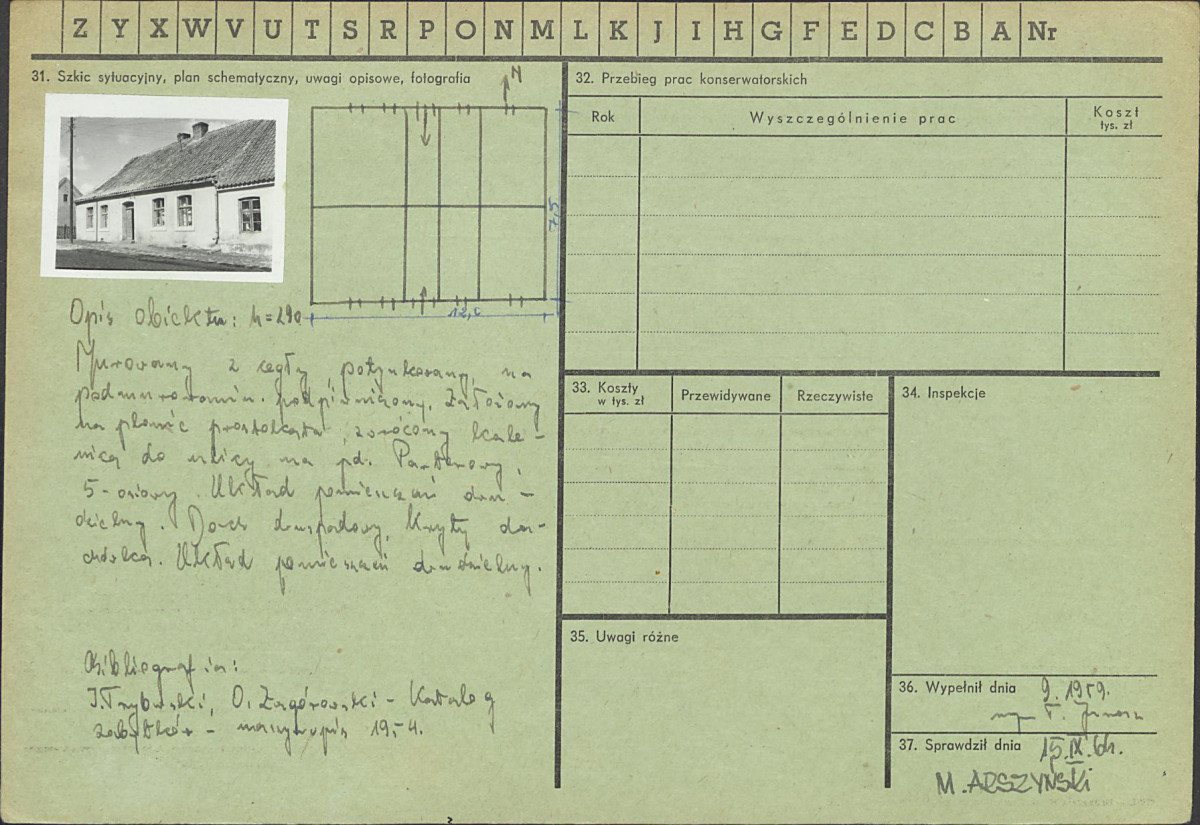 Z Y X W V U T S R P O N M L K J I H G F E D C B A Nr
31. Szkic sytuacyjny, plan schematyczny, uwagi opisowe, fotografia
N
7,5
Opis obiektu: h=290
Murowany z cegły potynkowany, na
podmurowaniu. podpiwniczony. Założony
na planie prostokąta, zwrócony kale-
nicą do ulicy na pd. Parterowy,
5-osiowy. Układ pomieszczeń dwu-
dzielny. Dach dwuspadowy, kryty da-
chówką. Układ pomieszczeń dwudzielny.
Bibliografia:
O. Zagórowski - Katalog
zabytków - maszynopis
32. Przebieg prac konserwatorskich
Rok
Wyszczególnienie prac
Koszt
tys. zł
33. Koszty
w tys. zł
Przewidywane
Rzeczywiste
34. Inspekcje
35. Uwagi różne
36. Wypełnił dnia 9. 1959.
mgr T.
37. Sprawdził dnia 15.IX.64.
M. ARSZYŃSKI